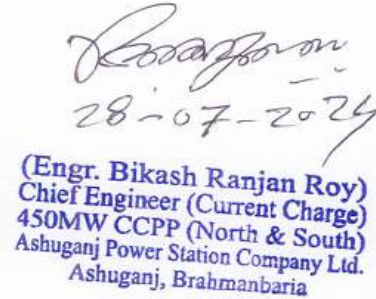 28-07-2024
(Engr. Bikash Ranjan Roy)
Chief Engineer (Current Charge)
450MW CCPP (North & South)
Ashuganj Power Station Company Ltd.
Ashuganj, Brahmanbaria